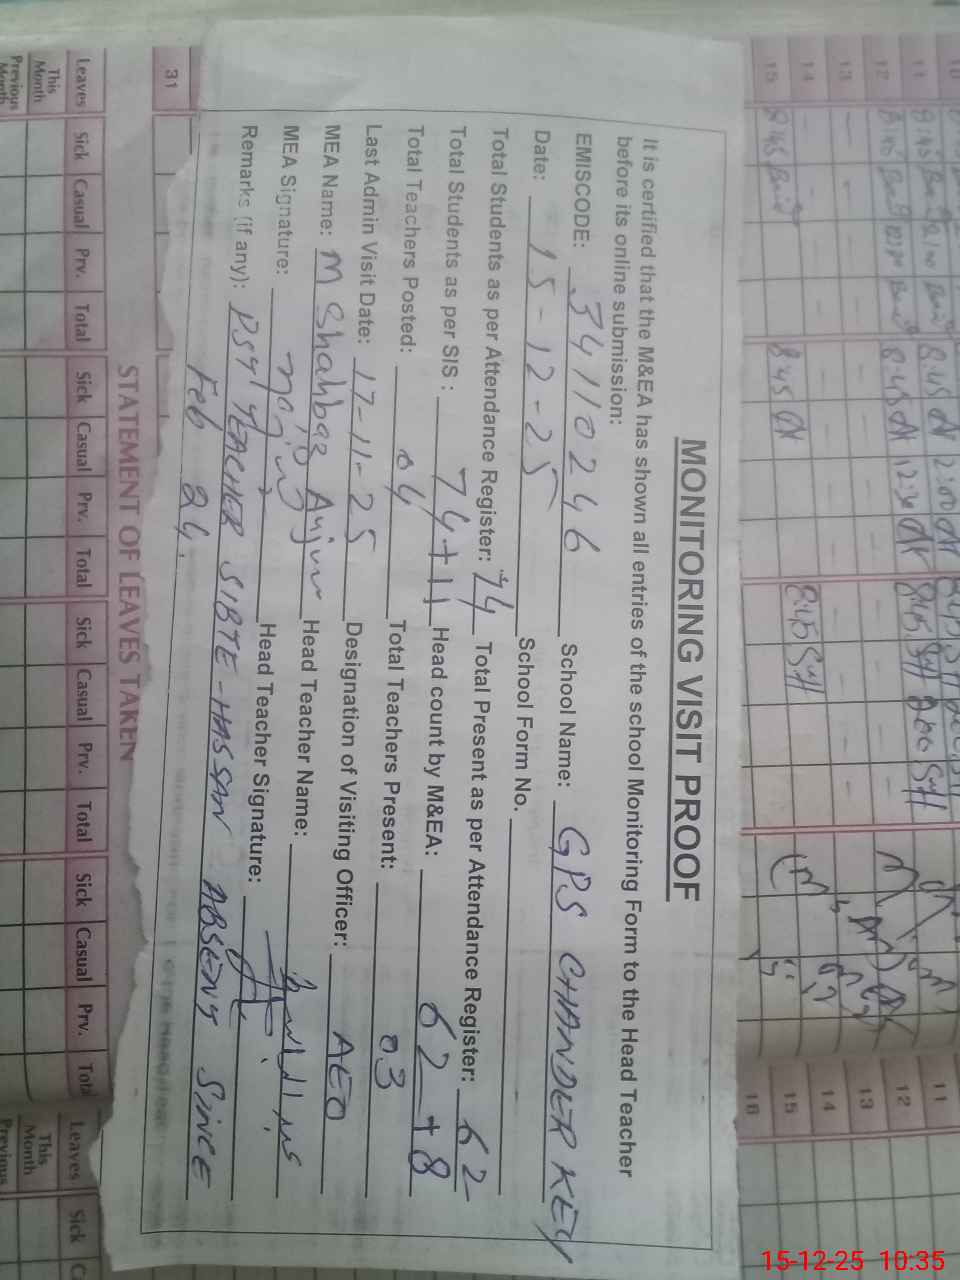 MONITORING VISIT PROOF
It is certified that the M&EA has shown all entries of the school Monitoring Form to the Head Teacher
before its online submission:
EMISCODE: 34110246 School Name: GPS CHANDER KEY
Date: 15-12-25 School Form No.
Total Students as per Attendance Register: 74 Total Present as per Attendance Register: 62
Total Students as per SIS : 74+11 Head count by M&EA: 62+8
Total Teachers Posted: 04 Total Teachers Present: 03
Last Admin Visit Date: 17-11-25 Designation of Visiting Officer: AEO
MEA Name: M Shahbaz Anjum Head Teacher Name:
MEA Signature: Head Teacher Signature:
Remarks (if any): PST TEACHER SIBTE-HASSAN ABSENT SINCE
Feb 24.
31
STATEMENT OF LEAVES TAKEN
Leaves Sick Casual Prv. Total Sick Casual Prv. Total Sick Casual Prv. Total Sick Casual Prv. Total Leaves Sick
This Month This Month
Previous Month Previous
11 8:45 8:45 2:00 8:45 2:00 11
12 8:45 8:45 12:30 12
13 13
14 14
15 8:45 8:45 8:45 15
16
15-12-25 10:35